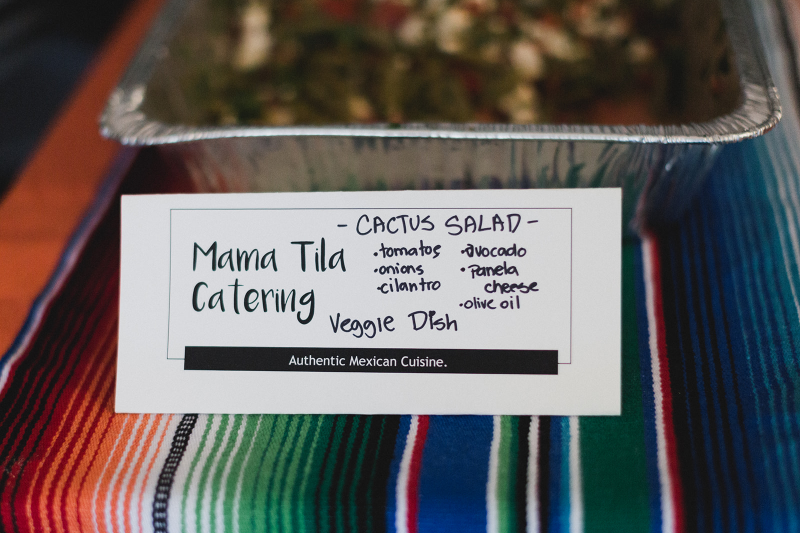 - CACTUS SALAD -
Mama Tila
Catering
•tomatos
•onions
•cilantro
•avocado
•Panela
cheese
•olive oil
Veggie Dish
Authentic Mexican Cuisine.